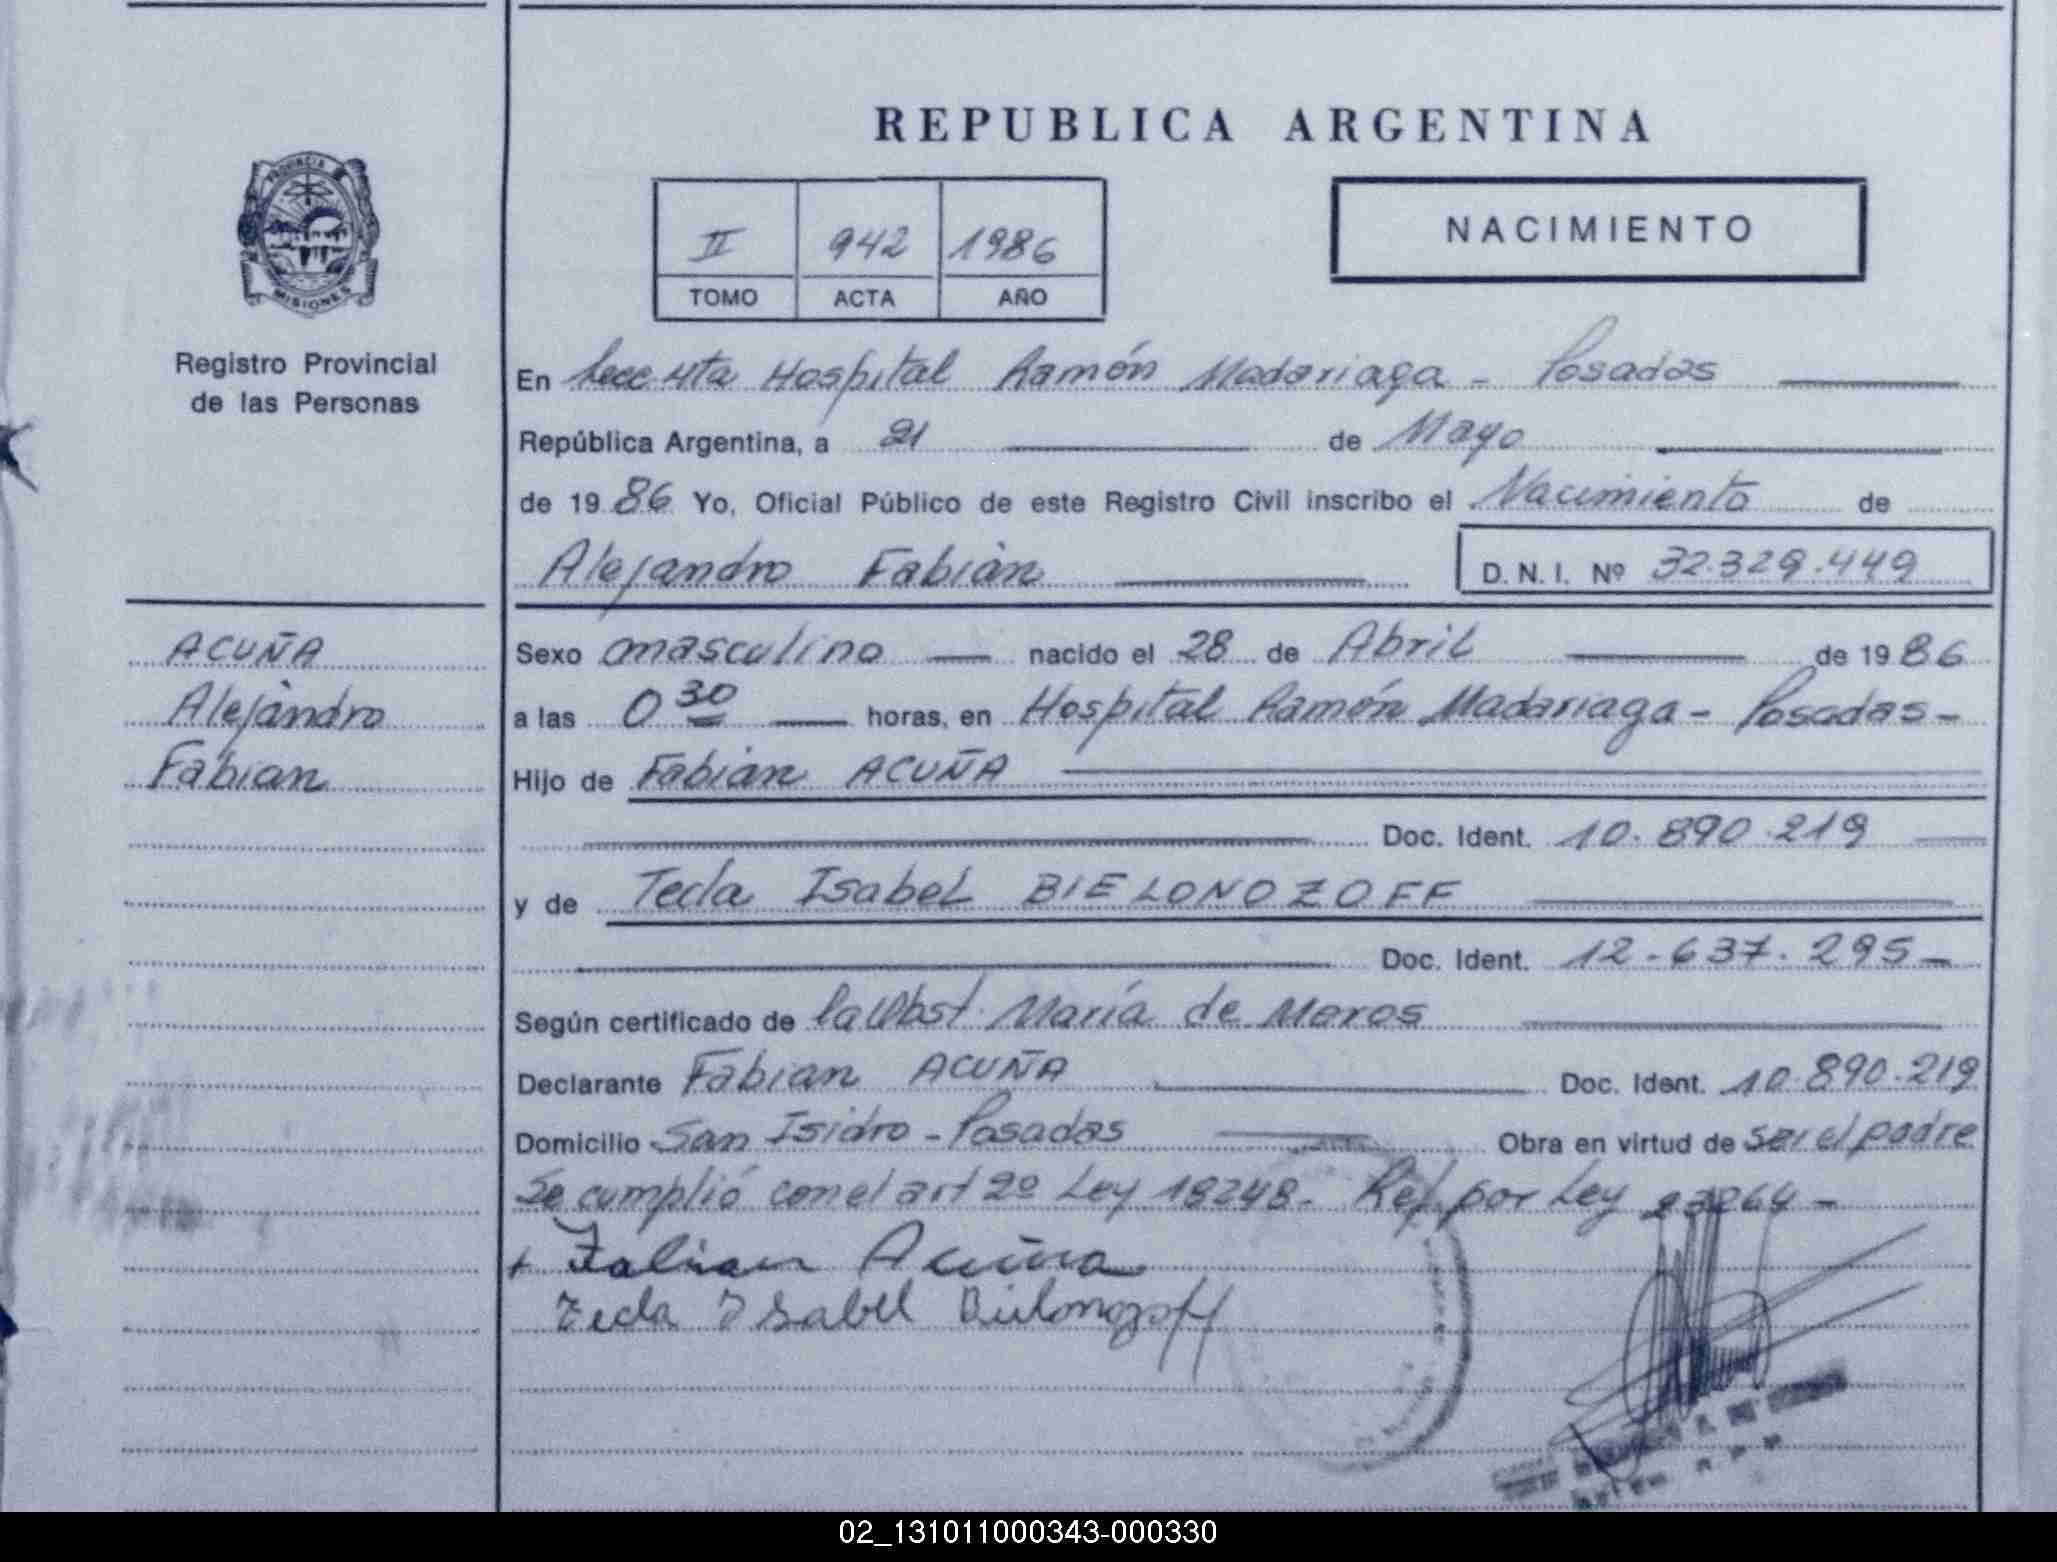 REPUBLICA ARGENTINA
PROVINCIA
MISIONES
Registro Provincial
de las Personas
II 942 1986
TOMO ACTA AÑO
NACIMIENTO
En Secc 4ta Hospital Ramón Madariaga - Posadas
República Argentina, a 21 de Mayo
de 1986 Yo, Oficial Público de este Registro Civil inscribo el Nacimiento de
Alejandro Fabián D.N.I. Nº 32.329.449
ACUÑA
Alejandro
Fabian
Sexo masculino nacido el 28 de Abril de 1986
a las 0 30 horas, en Hospital Ramón Madariaga - Posadas -
Hijo de Fabián ACUÑA
Doc. Ident. 10.890.219
y de Tecla Isabel BIELONOZOFF
Doc. Ident. 12-637.295 -
Según certificado de la Obst. María de Moros
Declarante Fabian ACUÑA Doc. Ident. 10.890.219
Domicilio San Isidro - Posadas Obra en virtud de ser el padre
Se cumplió con el art 2º Ley 18248 - Ref. por Ley 23264 -
Fabian Acuña
Tecla Isabel Bielonozoff
02_131011000343-000330